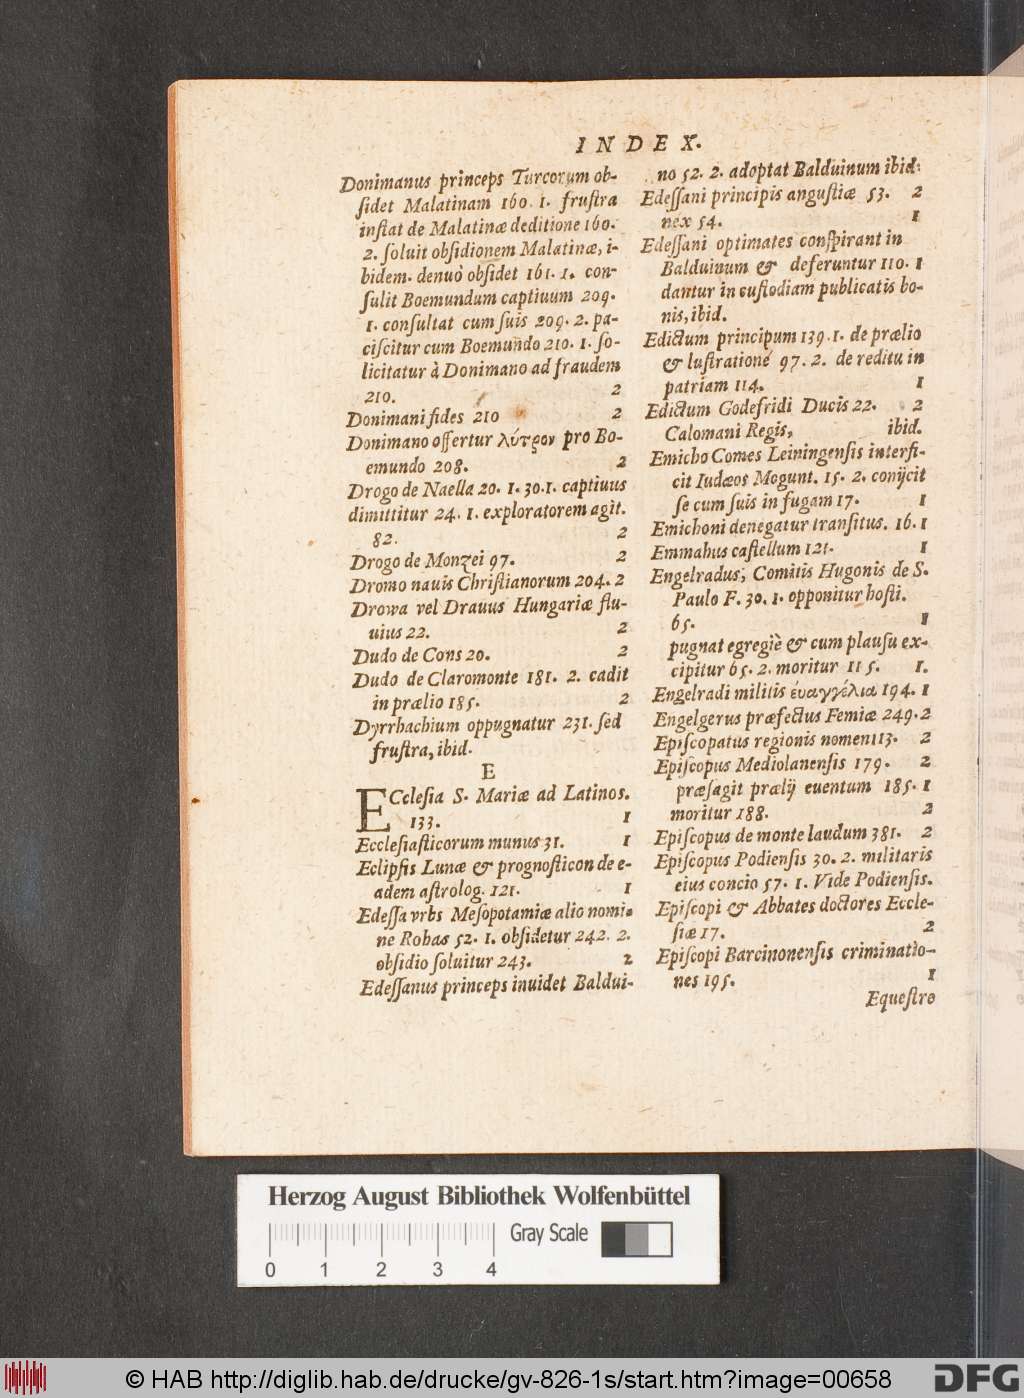 INDEX.
Donimanus princeps Turcorum ob-
ſidet Malatinam 160. 1. fruſtra
inſtat de Malatinæ deditione 160.
2. ſoluit obſidionem Malatinæ, i-
bidem. denuò obſidet 161. 1. con-
ſulit Boemundum captiuum 209.
1. conſultat cum ſuis 209. 2. pa-
ciſcitur cum Boemundo 210. 1. ſo-
licitatur à Donimano ad fraudem
210. 2
Donimani fides 210 2
Donimano offertur λύτρον pro Bo-
emundo 208. 2
Drogo de Naella 20. 1. 30. 1. captiuus
dimittitur 24. 1. exploratorem agit.
82. 2
Drogo de Monzei 97. 2
Dromo nauis Chriſtianorum 204. 2
Drowa vel Drauus Hungariæ flu-
uius 22. 2
Dudo de Cons 20. 2
Dudo de Claromonte 181. 2. cadit
in prælio 185. 2
Dyrrhachium oppugnatur 231. ſed
fruſtra, ibid.
E
ECcleſia S. Mariæ ad Latinos.
133. 1
Eccleſiaſticorum munus 31. 1
Eclipſis Lunæ & prognoſticon de e-
adem aſtrolog. 121. 1
Edeſſa vrbs Meſopotamiæ alio nomi-
ne Rohas 52. 1. obſidetur 242. 2.
obſidio ſoluitur 243. 2
Edeſſanus princeps inuidet Baldui-
no 52. 2. adoptat Balduinum ibid.
Edeſſani principis anguſtiæ 53. 2
nex 54. 1
Edeſſani optimates conſpirant in
Balduinum & deferuntur 110. 1
dantur in cuſtodiam publicatis bo-
nis, ibid.
Edictum principum 139. 1. de prælio
& luſtratione 97. 2. de reditu in
patriam 114. 1
Edictum Godefridi Ducis 22. 2
Calomani Regis, ibid.
Emicho Comes Leiningenſis interfi-
cit Iudæos Mogunt. 15. 2. conijcit
ſe cum ſuis in fugam 17. 1
Emichoni denegatur tranſitus. 16. 1
Emmahus caſtellum 121. 1
Engelradus, Comitis Hugonis de S.
Paulo F. 30. 1. opponitur hoſti.
65. 1
pugnat egregiè & cum plauſu ex-
cipitur 65. 2. moritur 115. 1.
Engelradi militis ἐυαγγέλια 194. 1
Engelgerus præfectus Femiæ 249. 2
Epiſcopatus regionis nomen 113. 2
Epiſcopus Mediolanenſis 179. 2
præſagit prælij euentum 185. 1
moritur 188. 2
Epiſcopus de monte laudum 381. 2
Epiſcopus Podienſis 30. 2. militaris
eius concio 57. 1. Vide Podienſis.
Epiſcopi & Abbates doctores Eccle-
ſiæ 17. 2
Epiſcopi Barcinonenſis criminatio-
nes 195. 1
Equeſtre
Herzog August Bibliothek Wolfenbüttel
Gray Scale
0 1 2 3 4
© HAB http://diglib.hab.de/drucke/gv-826-1s/start.htm?image=00658
DFG